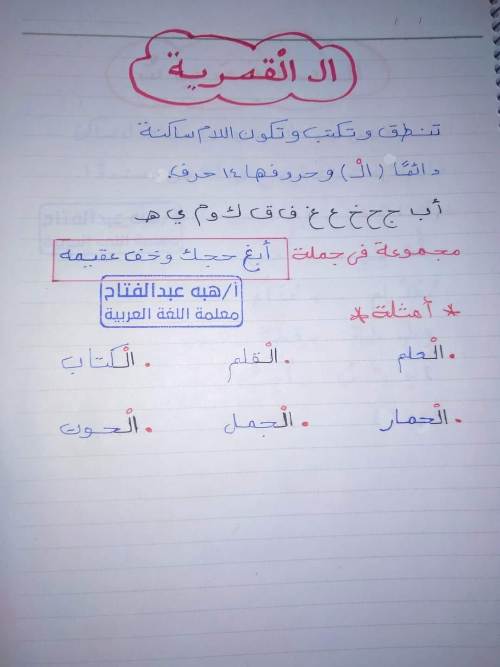 ال الْقمرية
تنطق وتكتب وتكون اللام ساكنة
دائمًا (الْ) وحروفها ١٤ حرف.
أ ب ج ح خ ع غ ف ق ك و م ي هـ
مجموعة في جملة أبغ حجك وخف عقيمه
أ/هبه عبدالفتاح
معلمة اللغة العربية
* أمثلة *
. الْعلم . الْقلم . الْكتاب
. الْحمار . الْجمل . الْحوت